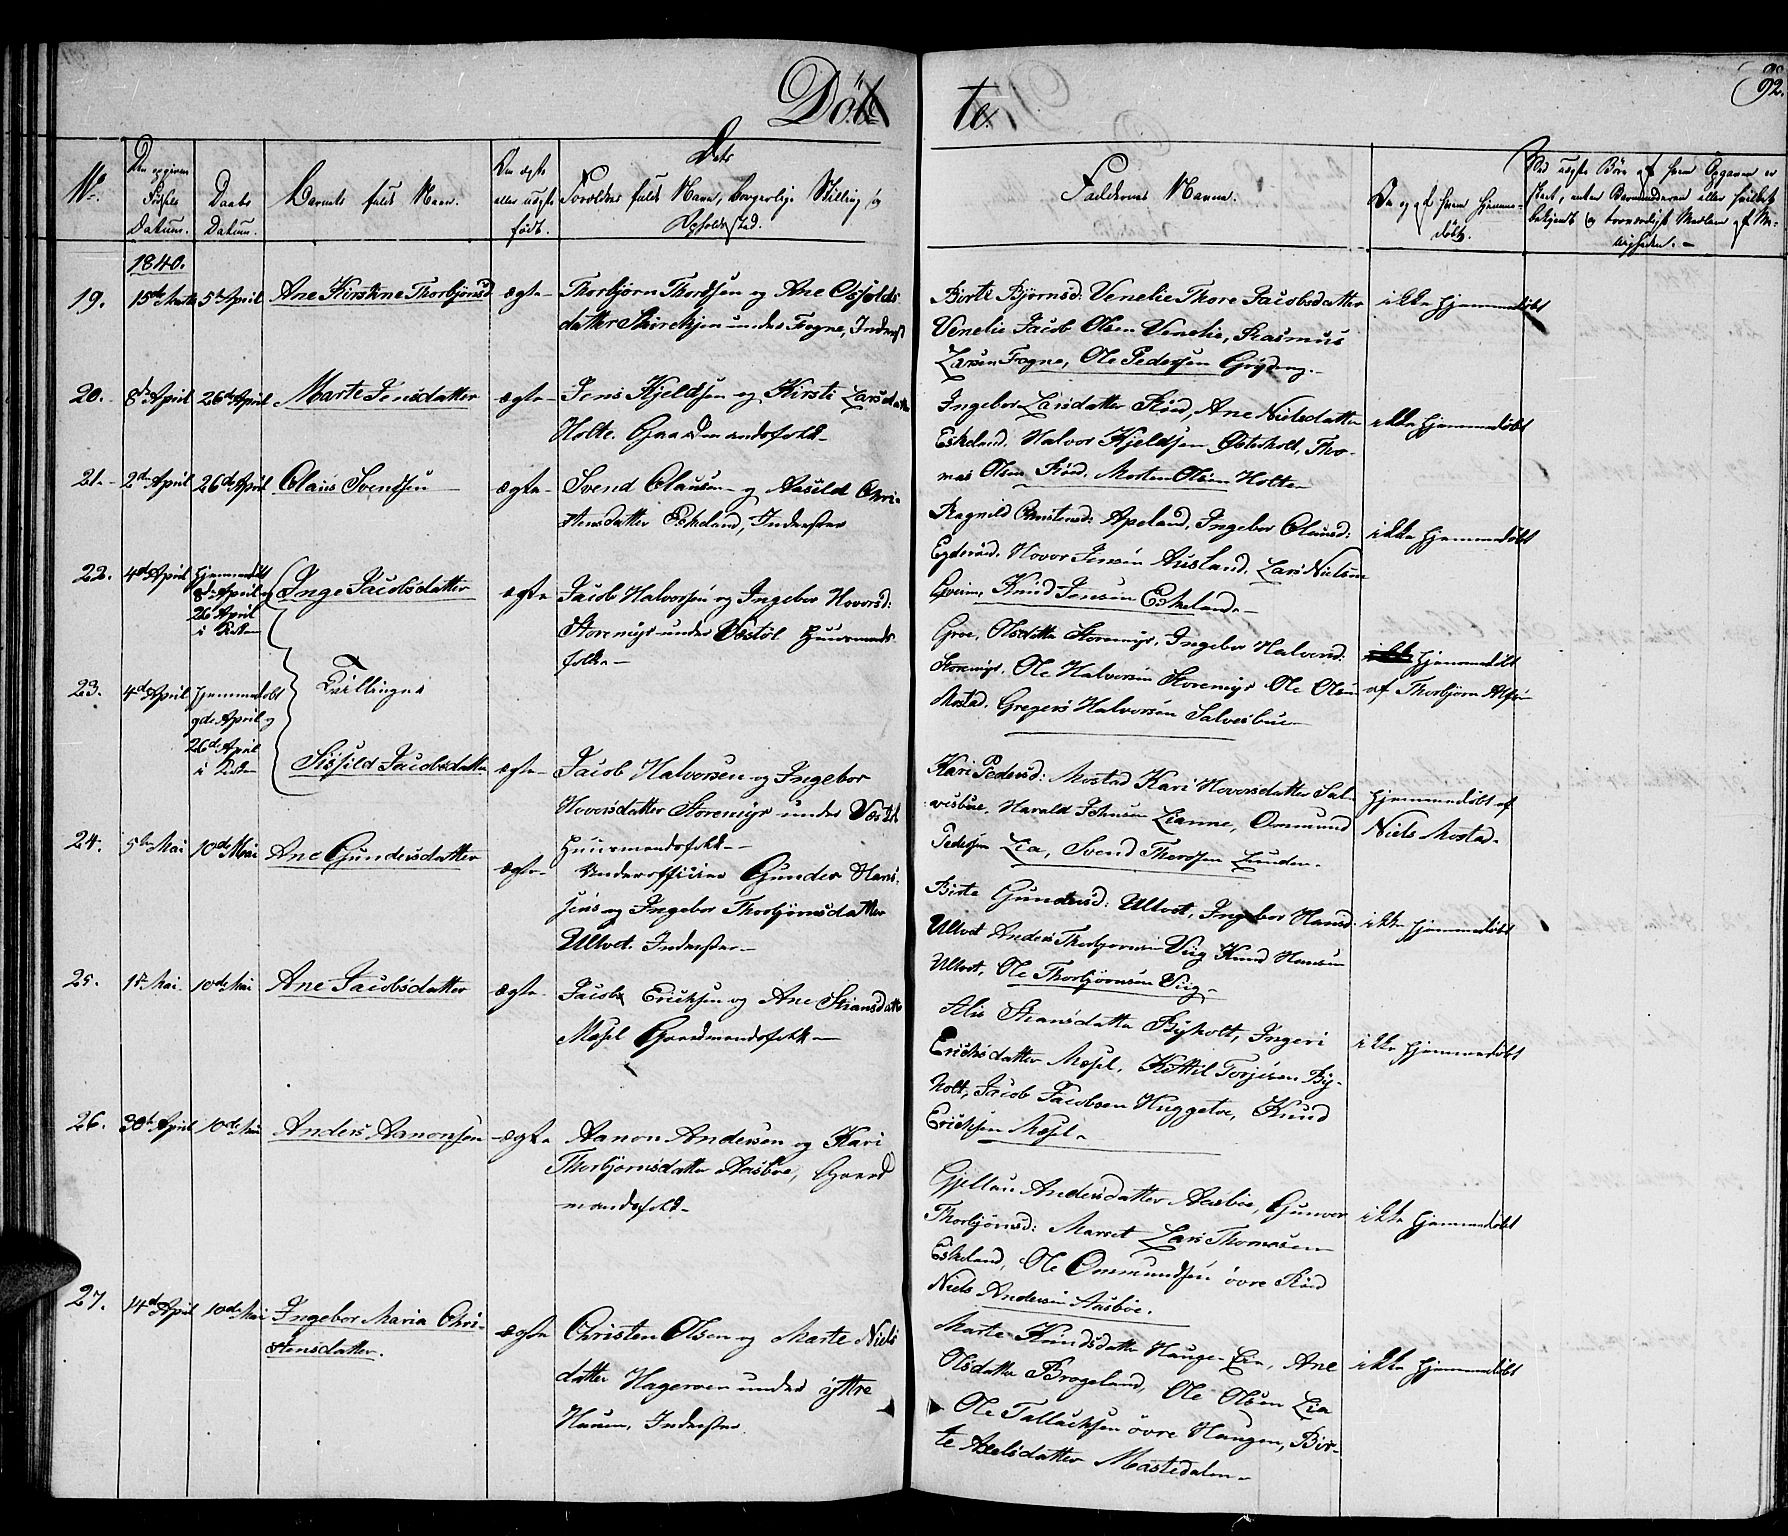 Döbte.
92.
No.
Den opgivne Födsels Datum.
Daabs Datum.
Barnets fulde Navn.
Om ægte eller uægte født.
Dets Forældres fulde Navn, borgerlige Stilling og Opholdssted.
Faddernes Navne.
Om og af hvem hjemmedöbt.
1840.
19. 15de Marts 5te April Ane Kirstine Thorbjörnsd ægte
Thorbjørn Thordsen og Ane Osufolds
datter under Fogne, Inderst
Birte Björnsd. Venelie Thore Jacobsdatter
Venelie Jacob Olsen Venelie, Rasmus
Larsen Fogne, Ole Pedersen
ikke hjemmedöbt
20. 8de April 26de April Marte Jensdatter ægte
Jens Kjeldsen og Kirsti Larsdatter
Holte. Gaardmandsfolk
Ingebor Larsdatter Röed, Ane Nielsdatter
Eskeland. Halvor Kjeldsen Osterholt, Tho-
mas Olsen Röed. Morten Olsen Holte
ikke hjemmedöbt
21. 2den April 26de April Olaus Svendsen ægte
Svend Olausen og Aasild Chri-
stensdatter Eskeland, Inderster
Ragnild Christensd: Apeland, Ingebor Olausd:
Egderöd. Hovor Jensen Ausland. Lars Nielsen
Knud Jensen Eskeland
ikke hjemmedöbt
22. 4de April Hjemmedöbt
8de April og
26 April
i Kirken
Inge Jacobsdatter ægte
Jacob Halvorsen og Ingebor Hovorsd:
Storemyr under Væstöl Huusmands
folk
Groe, Olsdatter Storemyr, Ingebor Halvorsd:
Storemyr. Ole Halvorsen Storemyr Ole Olsen
Mostad. Gregers Halvorsen Salvesbue
hjemmedöbt
af Thorbjörn
Tvillinger
23. 4de April Hjemmedöbt
9de April og
26de April
i Kirken
Sisfild Jacobsdatter ægte
Jacob Halvorsen og Ingebor
Hovorsdatter Storemyr under Væstöl
Huusmandsfolk
Kari Pedersd: Mostad Kari Hovorsdatter Sal-
vesbue. Harald Johnsen Lianne, Ommund
Pedersen Lia, Svend Thorsen Lunden.
Hjemmedöbt af
Niels Mostad.
24. 5te Mai 10de Mai Ane Gundersdatter ægte
Underofficier Gunder Hans-
sens og Ingebor Thorbjörnsdatter
Ulltvet. Inderster
Birte Gundersd: Ulltvet, Ingebor Hansd.
Ulltvet Anders Thorbjornsen Viig Knud Hansen
Ulltvet, Ole Thorbjörnsen Viig
ikke hjemmedöbt
25. 1ste Mai 10de Mai Ane Jacobsdatter ægte
Jacob Ericksen og Ane Stiansdatter
Mæsel Gaardmandsfolk
Stiansdatter Byholt, Ingeri
Ericksdatter Mæsel, Kittil Torjusen By-
holt, Jacob Jacobsen Huggetoe, Knud
Ericksen Mæsel
ikke hjemmedöbt
26. 30te April 10de Mai Anders Aanonsen ægte
Aanon Andersen og Kari
Thorbjornsdatter Aasböe, Gaard
mandsfolk
Andersdatter Aasböe, Gunvor
Thorbjörnsd: Marset Lars Thomasen
Eskeland, Ole Ommundsen övre Röed
Niels Andersen Aasböe.
ikke hjemmedöbt
27. 14de April 10de Mai Ingebor Maria Chri-
stensdatter. ægte
Christen Olsen og Marte Niels
datter Hageroen under yttre
Haven, Inderster
Marte Knudsdatter Hauge-Lia, Ane
Olsdatter Brageland, Ole Olsen Lia
Ole Tallacksen övre Haugen, Bir-
te Axelsdatter Mastedalen
ikke hjemmedöbt